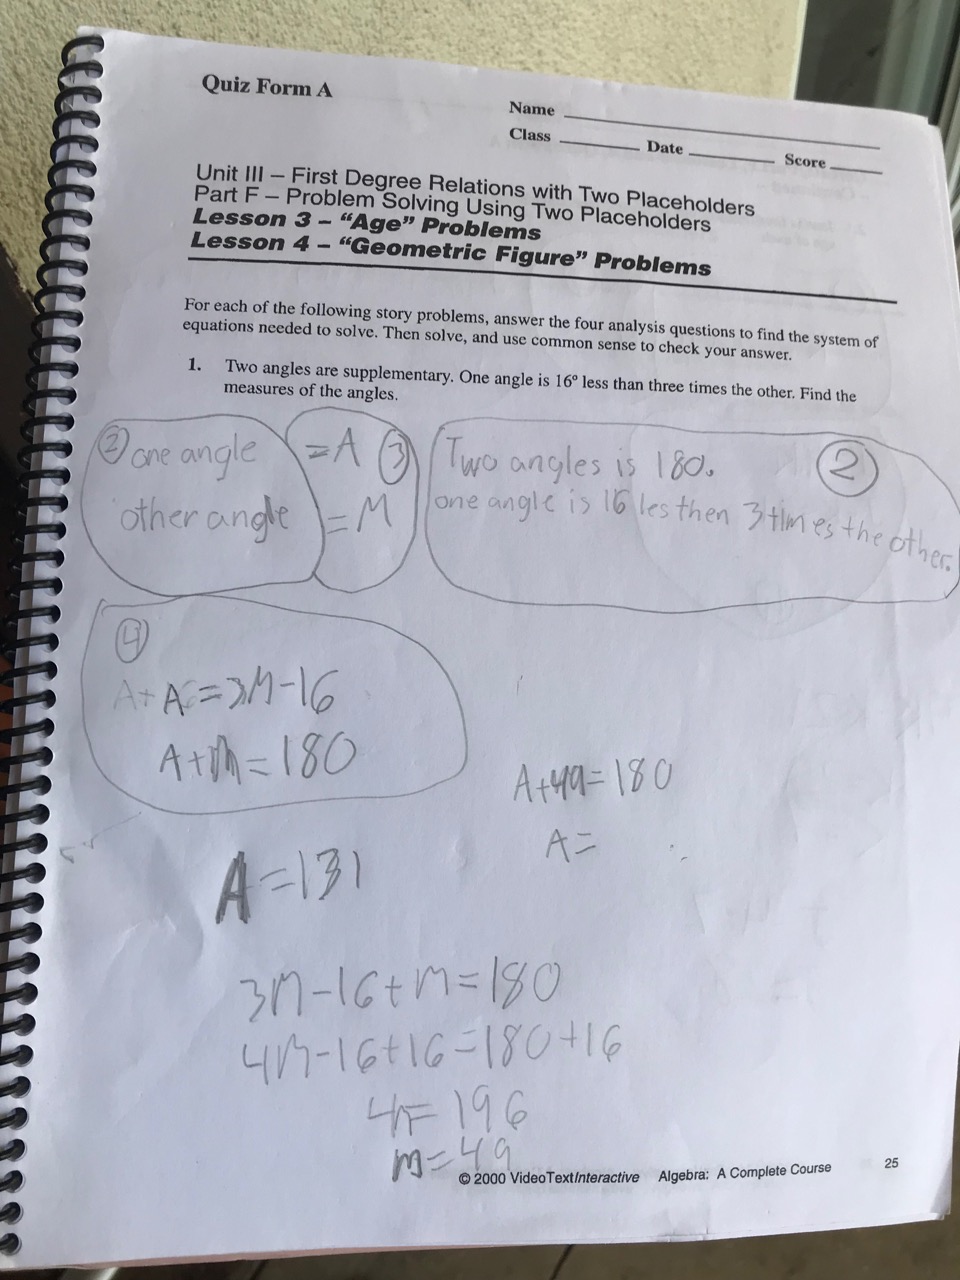 Quiz Form A
Name
Class Date Score
Unit III – First Degree Relations with Two Placeholders
Part F – Problem Solving Using Two Placeholders
Lesson 3 – “Age” Problems
Lesson 4 – “Geometric Figure” Problems
For each of the following story problems, answer the four analysis questions to find the system of
equations needed to solve. Then solve, and use common sense to check your answer.
1. Two angles are supplementary. One angle is 16° less than three times the other. Find the
measures of the angles.
② one angle
other angle
=A ③
=M
Two angles is 180. ②
one angle is 16 les then 3 times the other.
④
A=3M-16
A+M=180
A+49=180
A=
A=131
3M-16+M=180
4M-16+16=180+16
4M=196
M=49
© 2000 VideoTextInteractive Algebra: A Complete Course 25